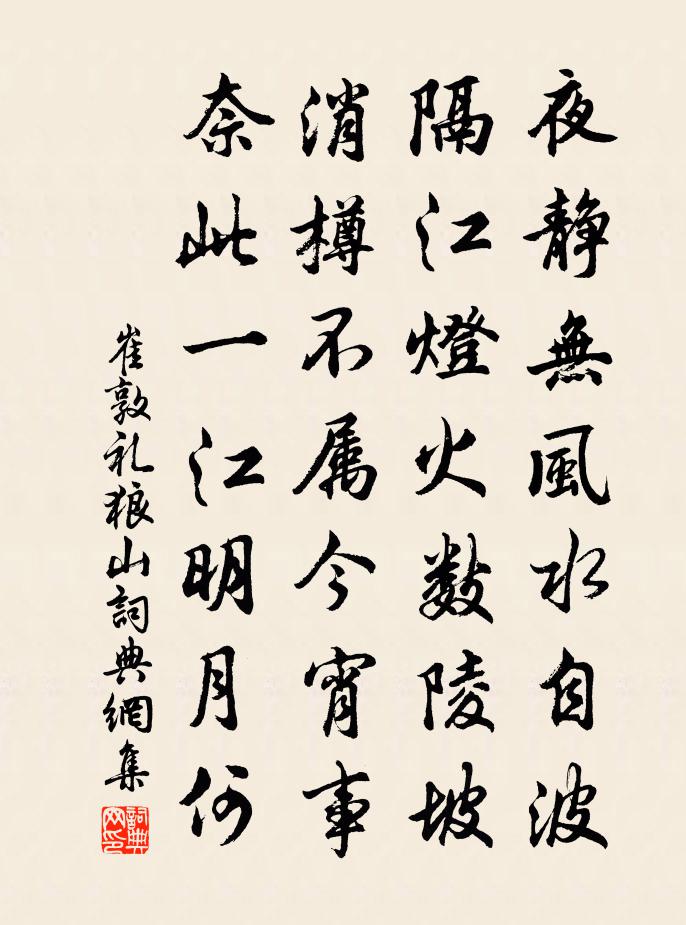 夜靜無風水自波
隔江燈火數陵坡
消樽不属今宵事
奈此一江明月何
崔敦礼狼山詞典網集
詞典网印